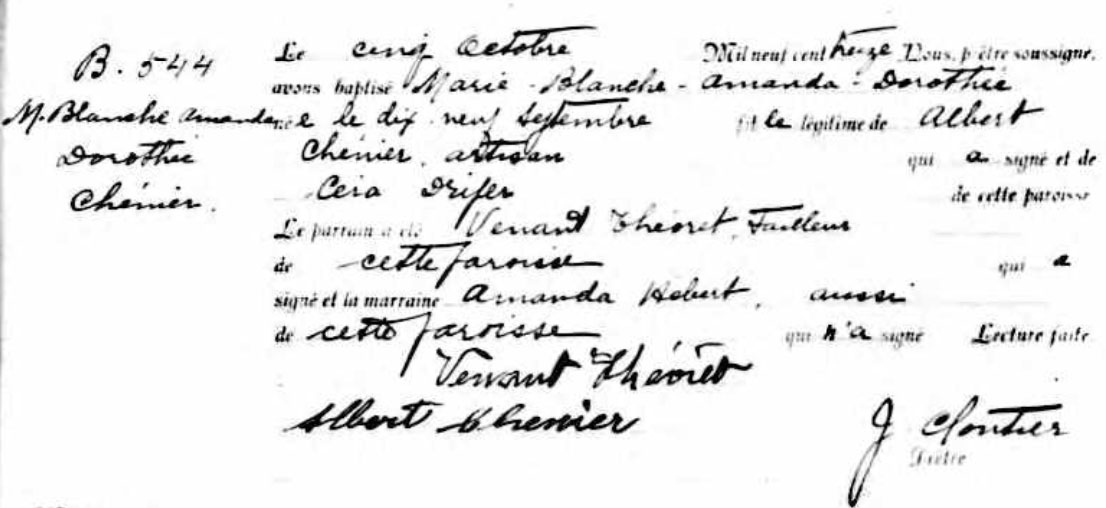 B. 544
M. Blanche Amanda
Dorothée
Chénier.
Le cinq Octobre Mil neuf cent treize Nous, prêtre soussigné,
avons baptisé Marie-Blanche-Amanda-Dorothée
née le dix-neuf Septembre fille légitime de Albert
Chénier, artisan qui a signé et de
de cette paroisse
Le parrain a été Venant Théoret, Tailleur
de cette paroisse qui a
signé et la marraine Amanda Hébert, aussi
de cette paroisse qui n'a signé Lecture faite
Venant Théorêt
Albert Chenier
J Cloutier
Prêtre